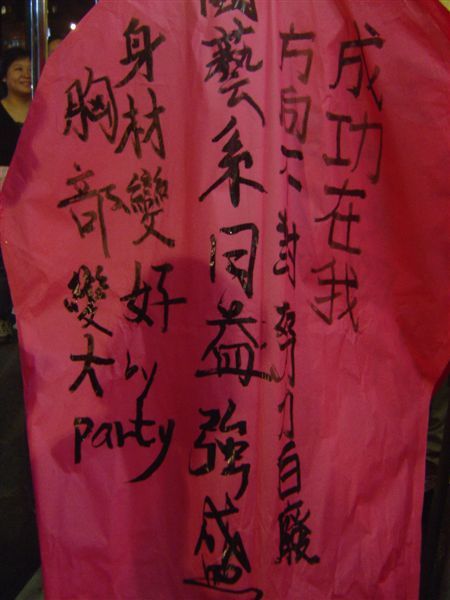 成功在我
方向不對努力白廢
藝系日益強盛
身材變好
胸部變大
by party